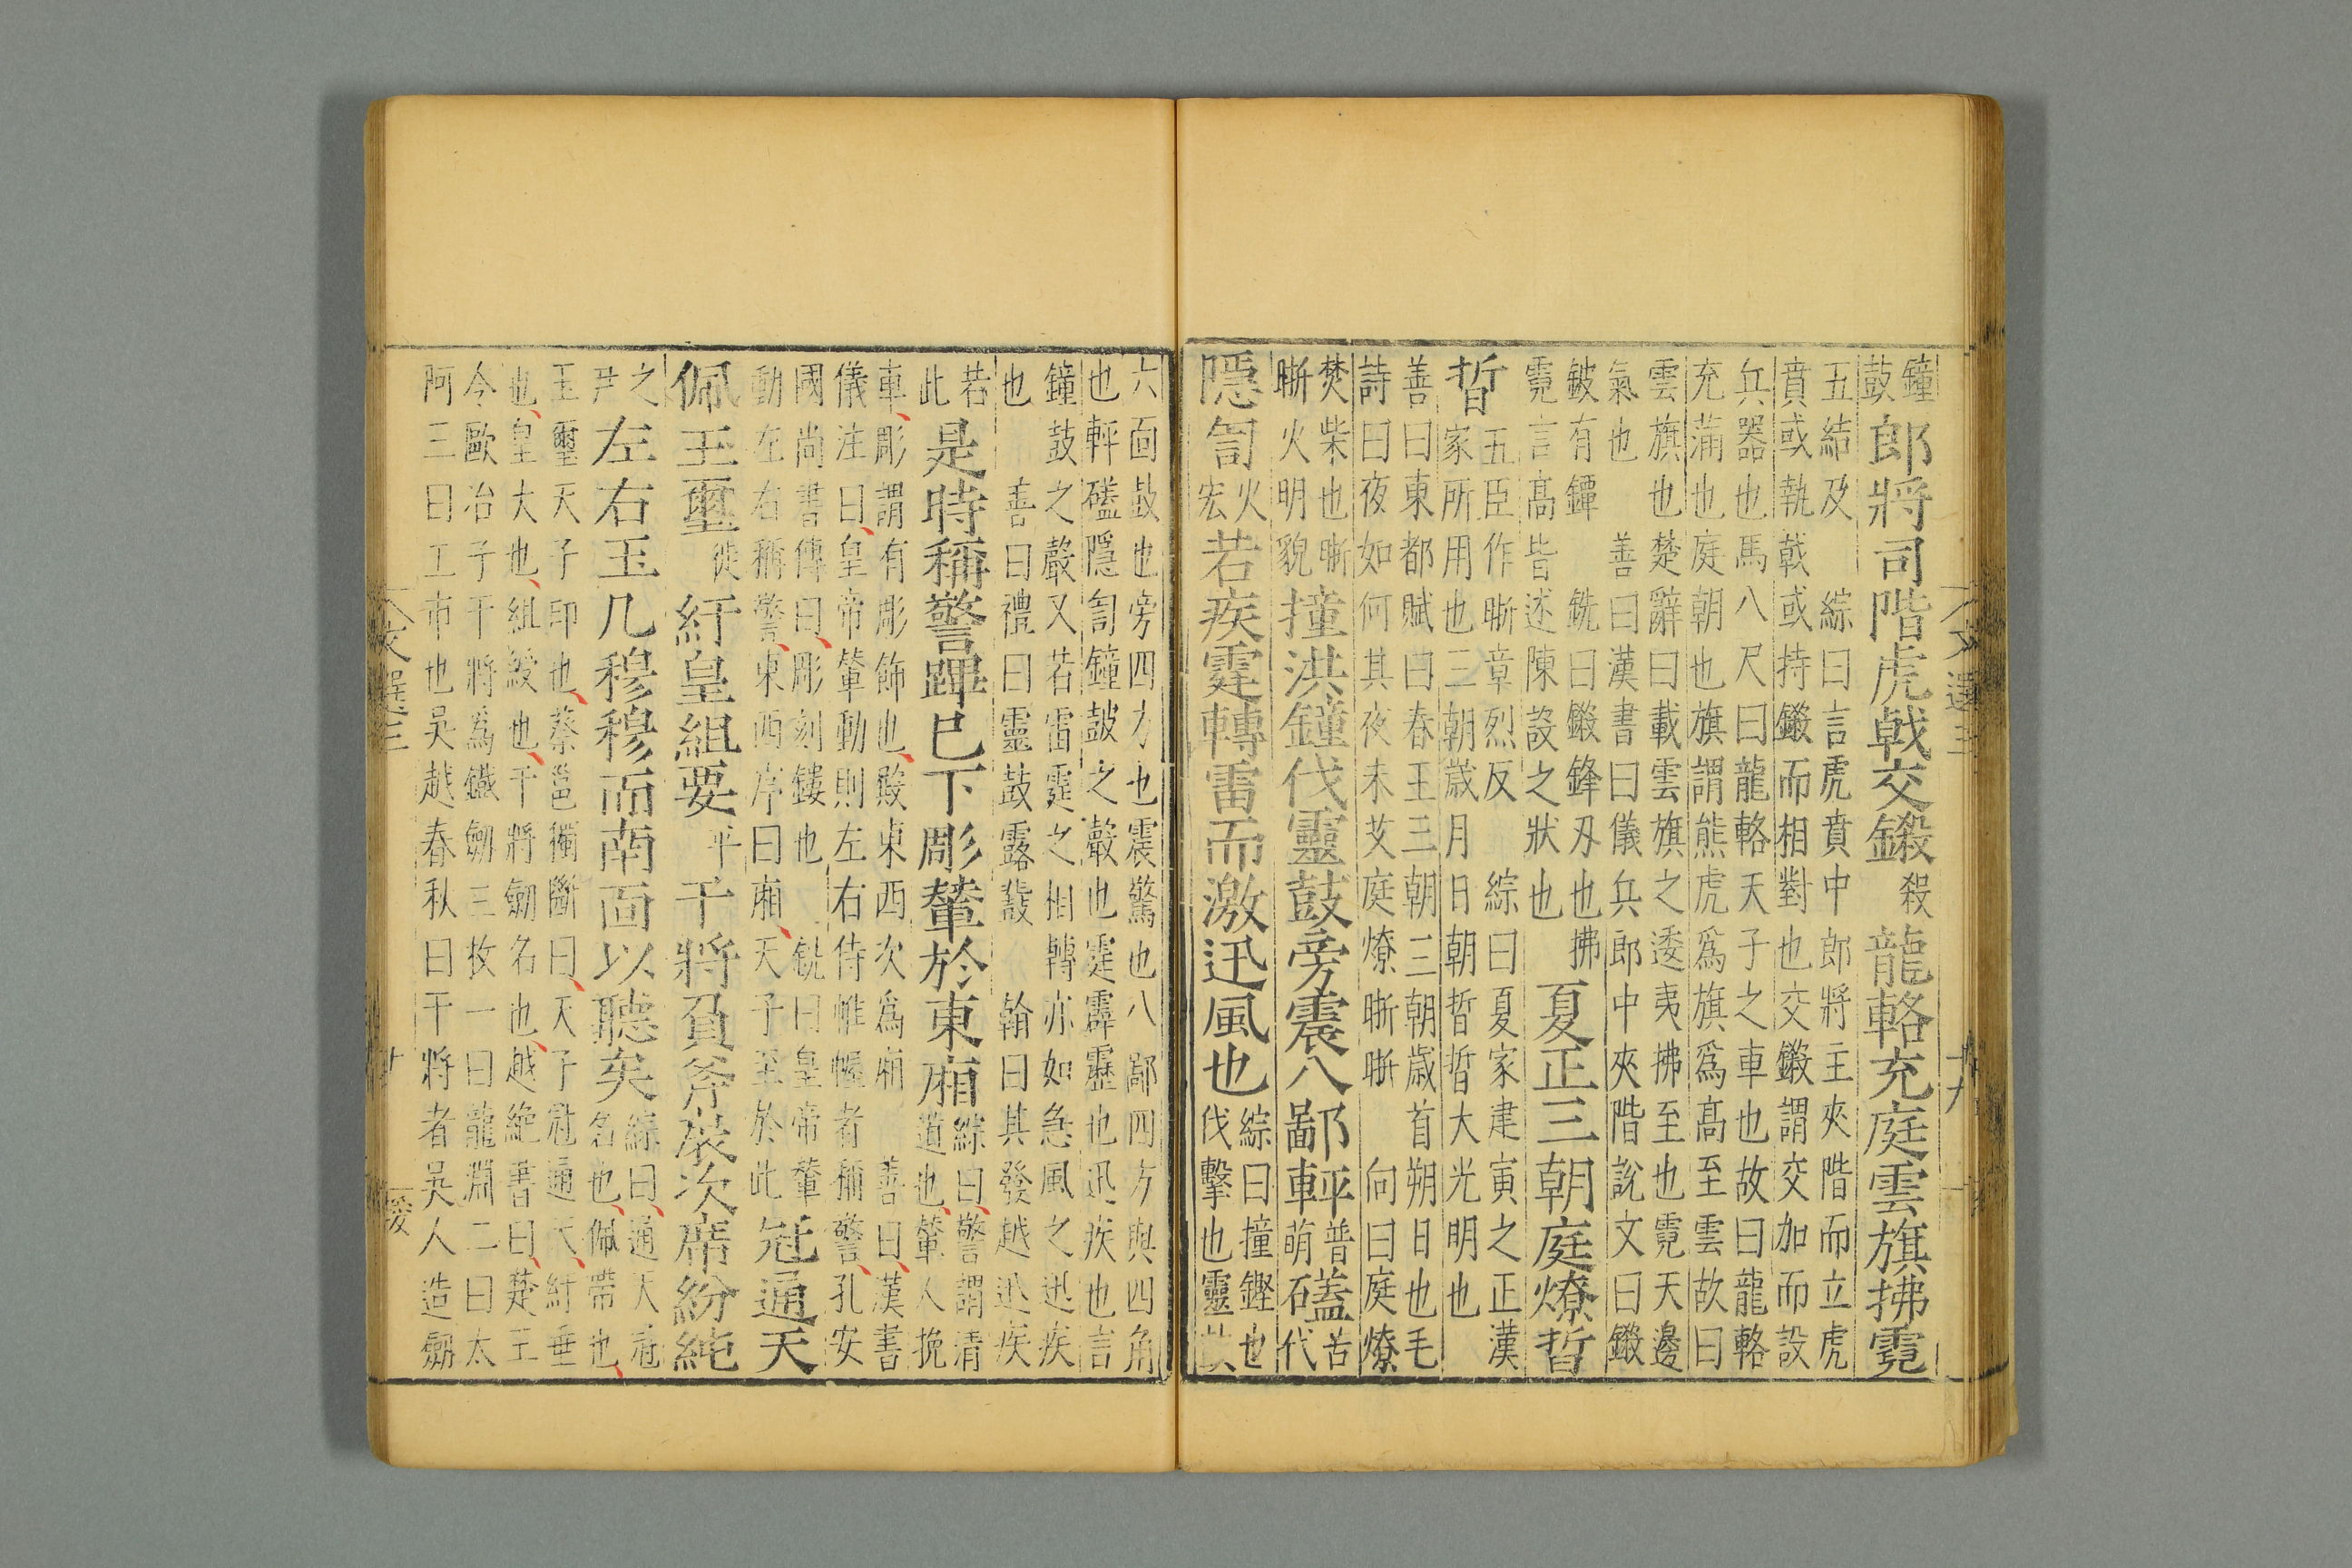 鐘
鼓郎將司階虎戟交鎩殺龍輅充庭雲旗拂霓
五結及 綜曰言虎賁中郎將主夾階而立虎
賁或執戟或持鎩而相對也交鎩謂交加而設
兵器也馬八尺曰龍輅天子之車也故曰龍輅
充滿也庭朝也旗謂熊虎爲旗爲高至雲故曰
雲旗也楚辭曰載雲旗之逶夷拂至也霓天邊
氣也 善曰漢書曰儀兵郎中夾階說文曰鎩
鈹有鐔 銑曰鎩鋒刃也拂
霓言高皆述陳設之狀也夏正三朝庭燎晢
晢五臣作晣章烈反 綜曰夏家建寅之正漢
家所用也三朝歲月日朝晢晢大光明也
善曰東都賦曰春王三朝三朝歲首朔日也毛
詩曰夜如何其夜未艾庭燎晣晣 向曰庭燎
焚柴也晣
晣火明貌撞洪鐘伐靈鼓旁震八鄙軯普萌磕苦代
隱訇火宏若疾霆轉雷而激迅風也綜曰撞鏗也
伐擊也靈鼓
六面鼓也旁四方也震驚也八鄙四方與四角
也軯磕隱訇鐘鼓之聲也霆霹靂也迅疾也言
鐘鼓之聲又若雷霆之相轉亦如急風之迅疾
也 善曰禮曰靈鼓露鼗 翰曰其發越迅疾
若
此是時稱警蹕巳下彫輦於東廂綜曰警謂清
道也輦人挽
車彫謂有彫飾也殿東西次爲廂 善曰漢書
儀注曰皇帝輦動則左右侍帷幄者稱警孔安
國尚書傳曰彫刻鏤也 銑曰皇帝輦
動左右稱警東西序曰廂天子至於此冠通天
佩玉璽徙紆皇組要平干將負斧扆次席紛純
之
尹左右玉几穆穆而南面以聽矣綜曰通天冠
名也佩帶也
玉璽天子印也蔡邕獨斷曰天子冠通天紆垂
也皇大也組綬也干將劒名也越絶書曰楚王
今歐冶子干將爲鐵劒三枚一曰龍淵二曰太
阿三曰工市也吳越春秋曰干將者吳人造劒
文選三
十九
文選三
廿